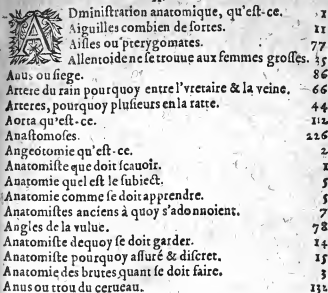 ADminiſtration anatomique, qu'eſt-ce. 1
Aiguilles combien de ſortes. 11
Aiſles ou pterygomates. 77
Allentoide ne ſe trouue aux femmes groſſes. 35
Anus ou ſiege. 86
Artere du rain pourquoy entre l'vretaire & la veine. 66
Arteres, pourquoy pluſieurs en la ratte. 44
Aorta qu'eſt-ce. 112
Anaſtomoſes. 226
Angeotomie qu'eſt-ce. 2
Anatomiſte que doit ſcauoir. 1
Anatomie quel eſt le ſubiect. 5
Anatomie comme ſe doit apprendre. 5
Anatomiſtes anciens à quoy s'adonnoient. 7
Angles de la vulue. 78
Anatomiſte dequoy ſe doit garder. 14
Anatomiſte pourquoy aſſuré & diſcret. 15
Anatomie des brutes quant ſe doit faire. 3
Anus ou trou du cerueau. 132